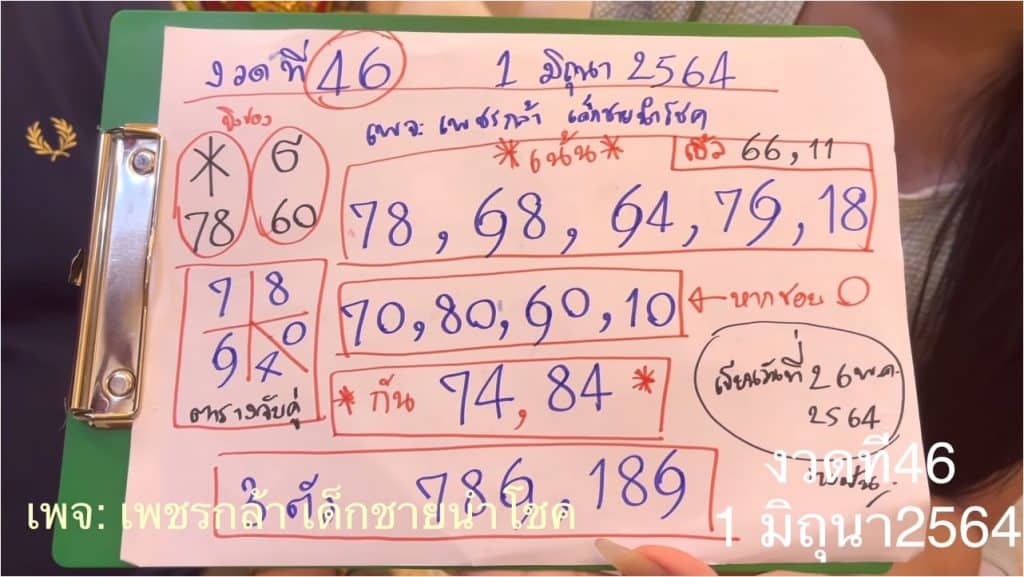 งวดที่ 46 1 มิถุนา 2564
เพจ: เพชรกล้า เด็กชายนำโชค
* 6
78 60
*เน้น* 66,11
78, 68, 64, 79, 18
7 8
6 4 0
ตารางจับคู่
70, 80, 60, 10 หากชอบ 0
* กัน 74, 84 *
เขียนวันที่ 26 พ.ค.
2564
3 ตัว 786, 186
งวดที่46
เพจ: เพชรกล้า เด็กชายนำโชค
1 มิถุนา2564